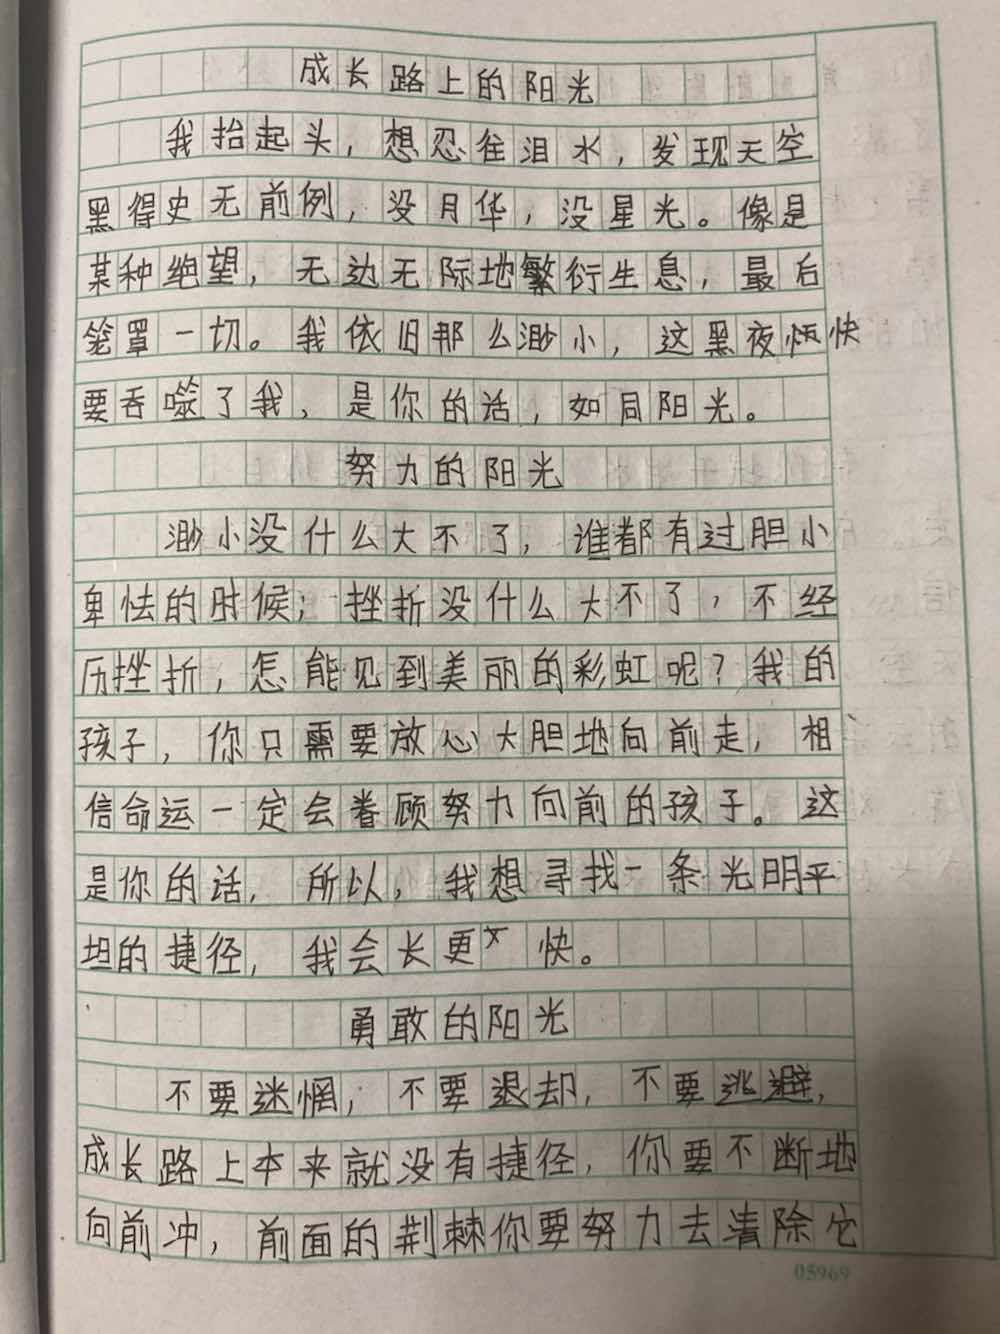 成长路上的阳光
我抬起头，想忍住泪水，发现天空
黑得史无前例，没月华，没星光。像是
某种绝望，无边无际地繁衍生息，最后
笼罩一切。我依旧那么渺小，这黑夜快
要吞噬了我，是你的话，如同阳光。
努力的阳光
渺小没什么大不了，谁都有过胆小
卑怯的时候；挫折没什么大不了，不经
历挫折，怎能见到美丽的彩虹呢？我的
孩子，你只需要放心大胆地向前走，相
信命运一定会眷顾努力向前的孩子。这
是你的话，所以，我想寻找一条光明平
坦的捷径，我会长更快。
勇敢的阳光
不要迷惘；不要退却，不要逃避，
成长路上本来就没有捷径，你要不断地
向前冲，前面的荆棘你要努力去清除它
05969